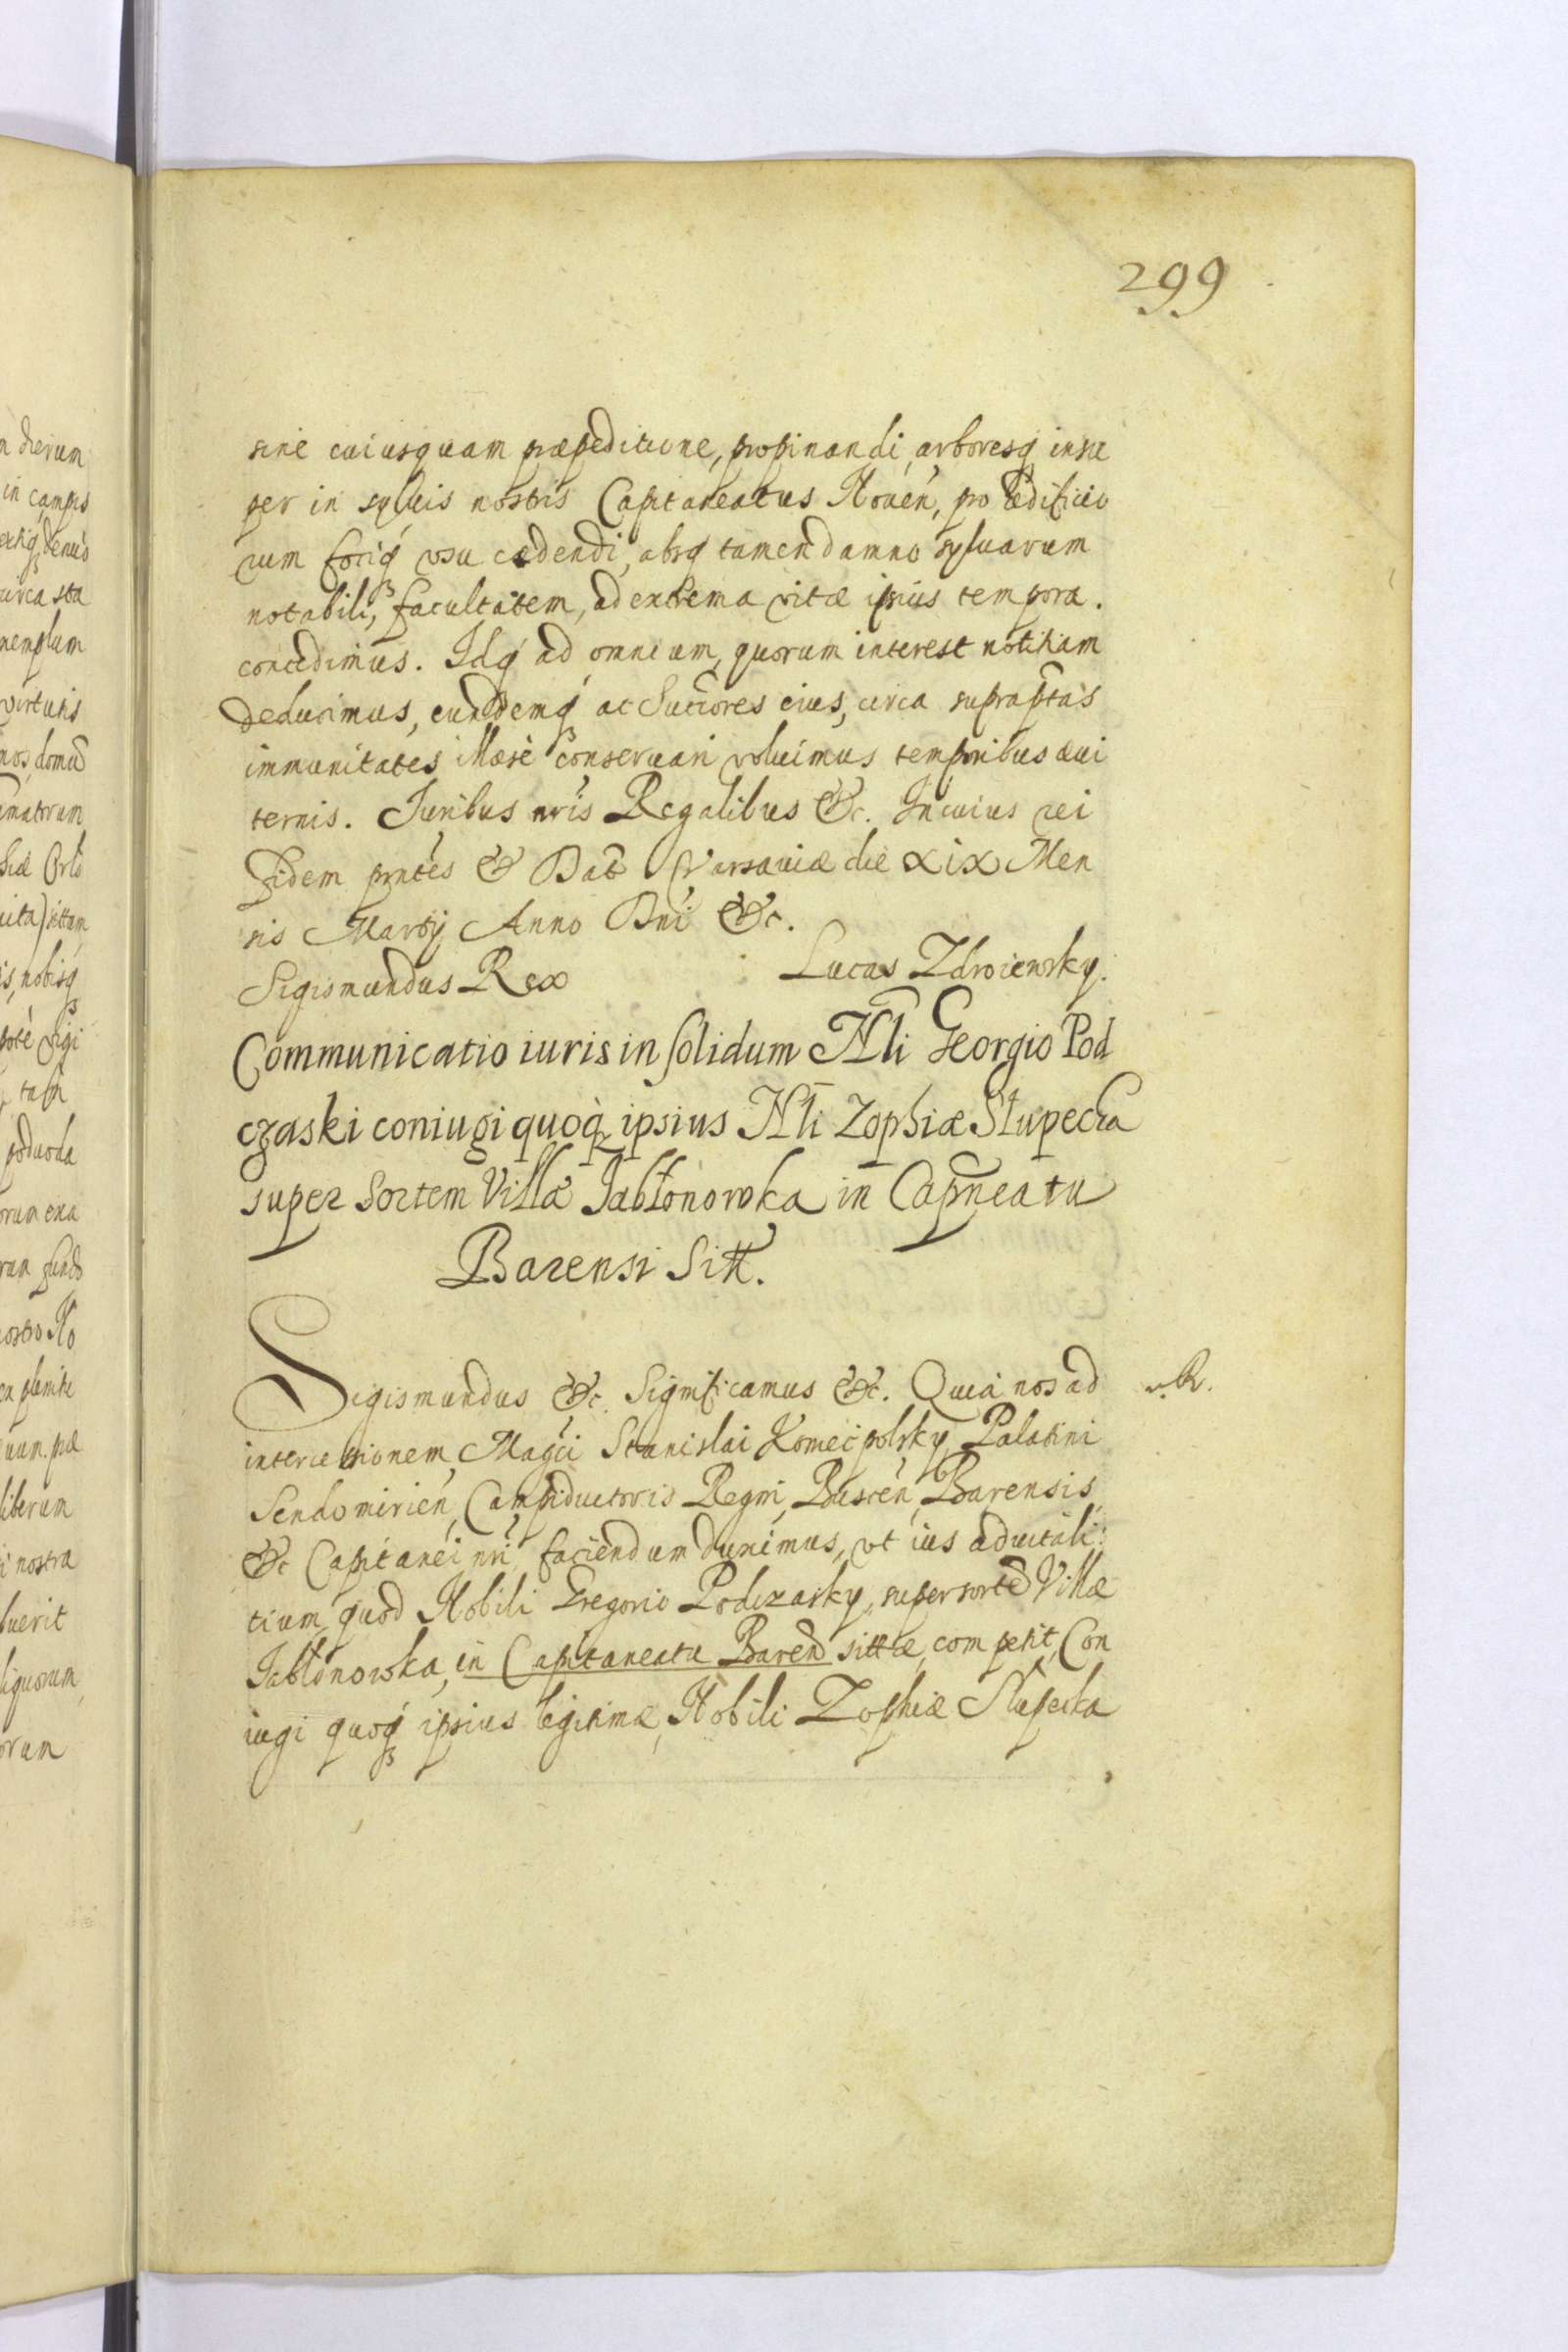 299
sine cuiusquam præpeditione, propinandi, arboresq insu
per in syluis nostris Capitaneatus Nouen, pro ædificio
rum fociq vsu cædendi, absq tamen damno syluarum
notabili, facultatem, ad extrema vitæ ipsius tempora.
concedimus. Idq ad omnium, quorum interest notitiam
deducimus, eundemq ac Succores eius, circa suprapttas
immunitates illæse conseruari volumus temporibus æui
ternis. Iuribus nris Regalibus &c. In cuius rei
fidem pntes & Dat Varsauiæ die XIX Men
sis Martij Anno Dni &c.
Sigismundus Rex Lucas Zdroiewsky.
Communicatio iuris in solidum Nli Georgio Pod
czaski coniugi quoq ipsius Nli Zophiæ Słupecka
super Sortem Villæ Jabłonowka in Capneatu
Barensi Sitt.
Sigismundus &c. Significamus &c. Quia nos ad
R.
intercessionem Magci Stanislai Koniecpolsky Palatini
Sendomirien, Campiductoris Regni, Buscen, Barensis
&c Capitanei nri, faciendum duximus, vt ius aduitali
tium, quod Nobili Gregorio Podczasky, super sorte Villæ
Jabłonowka, in Capitaneatu Baren sittæ, competit, Con
iugi quoq ipsius legitimæ, Nobili Zophiæ Słupecka